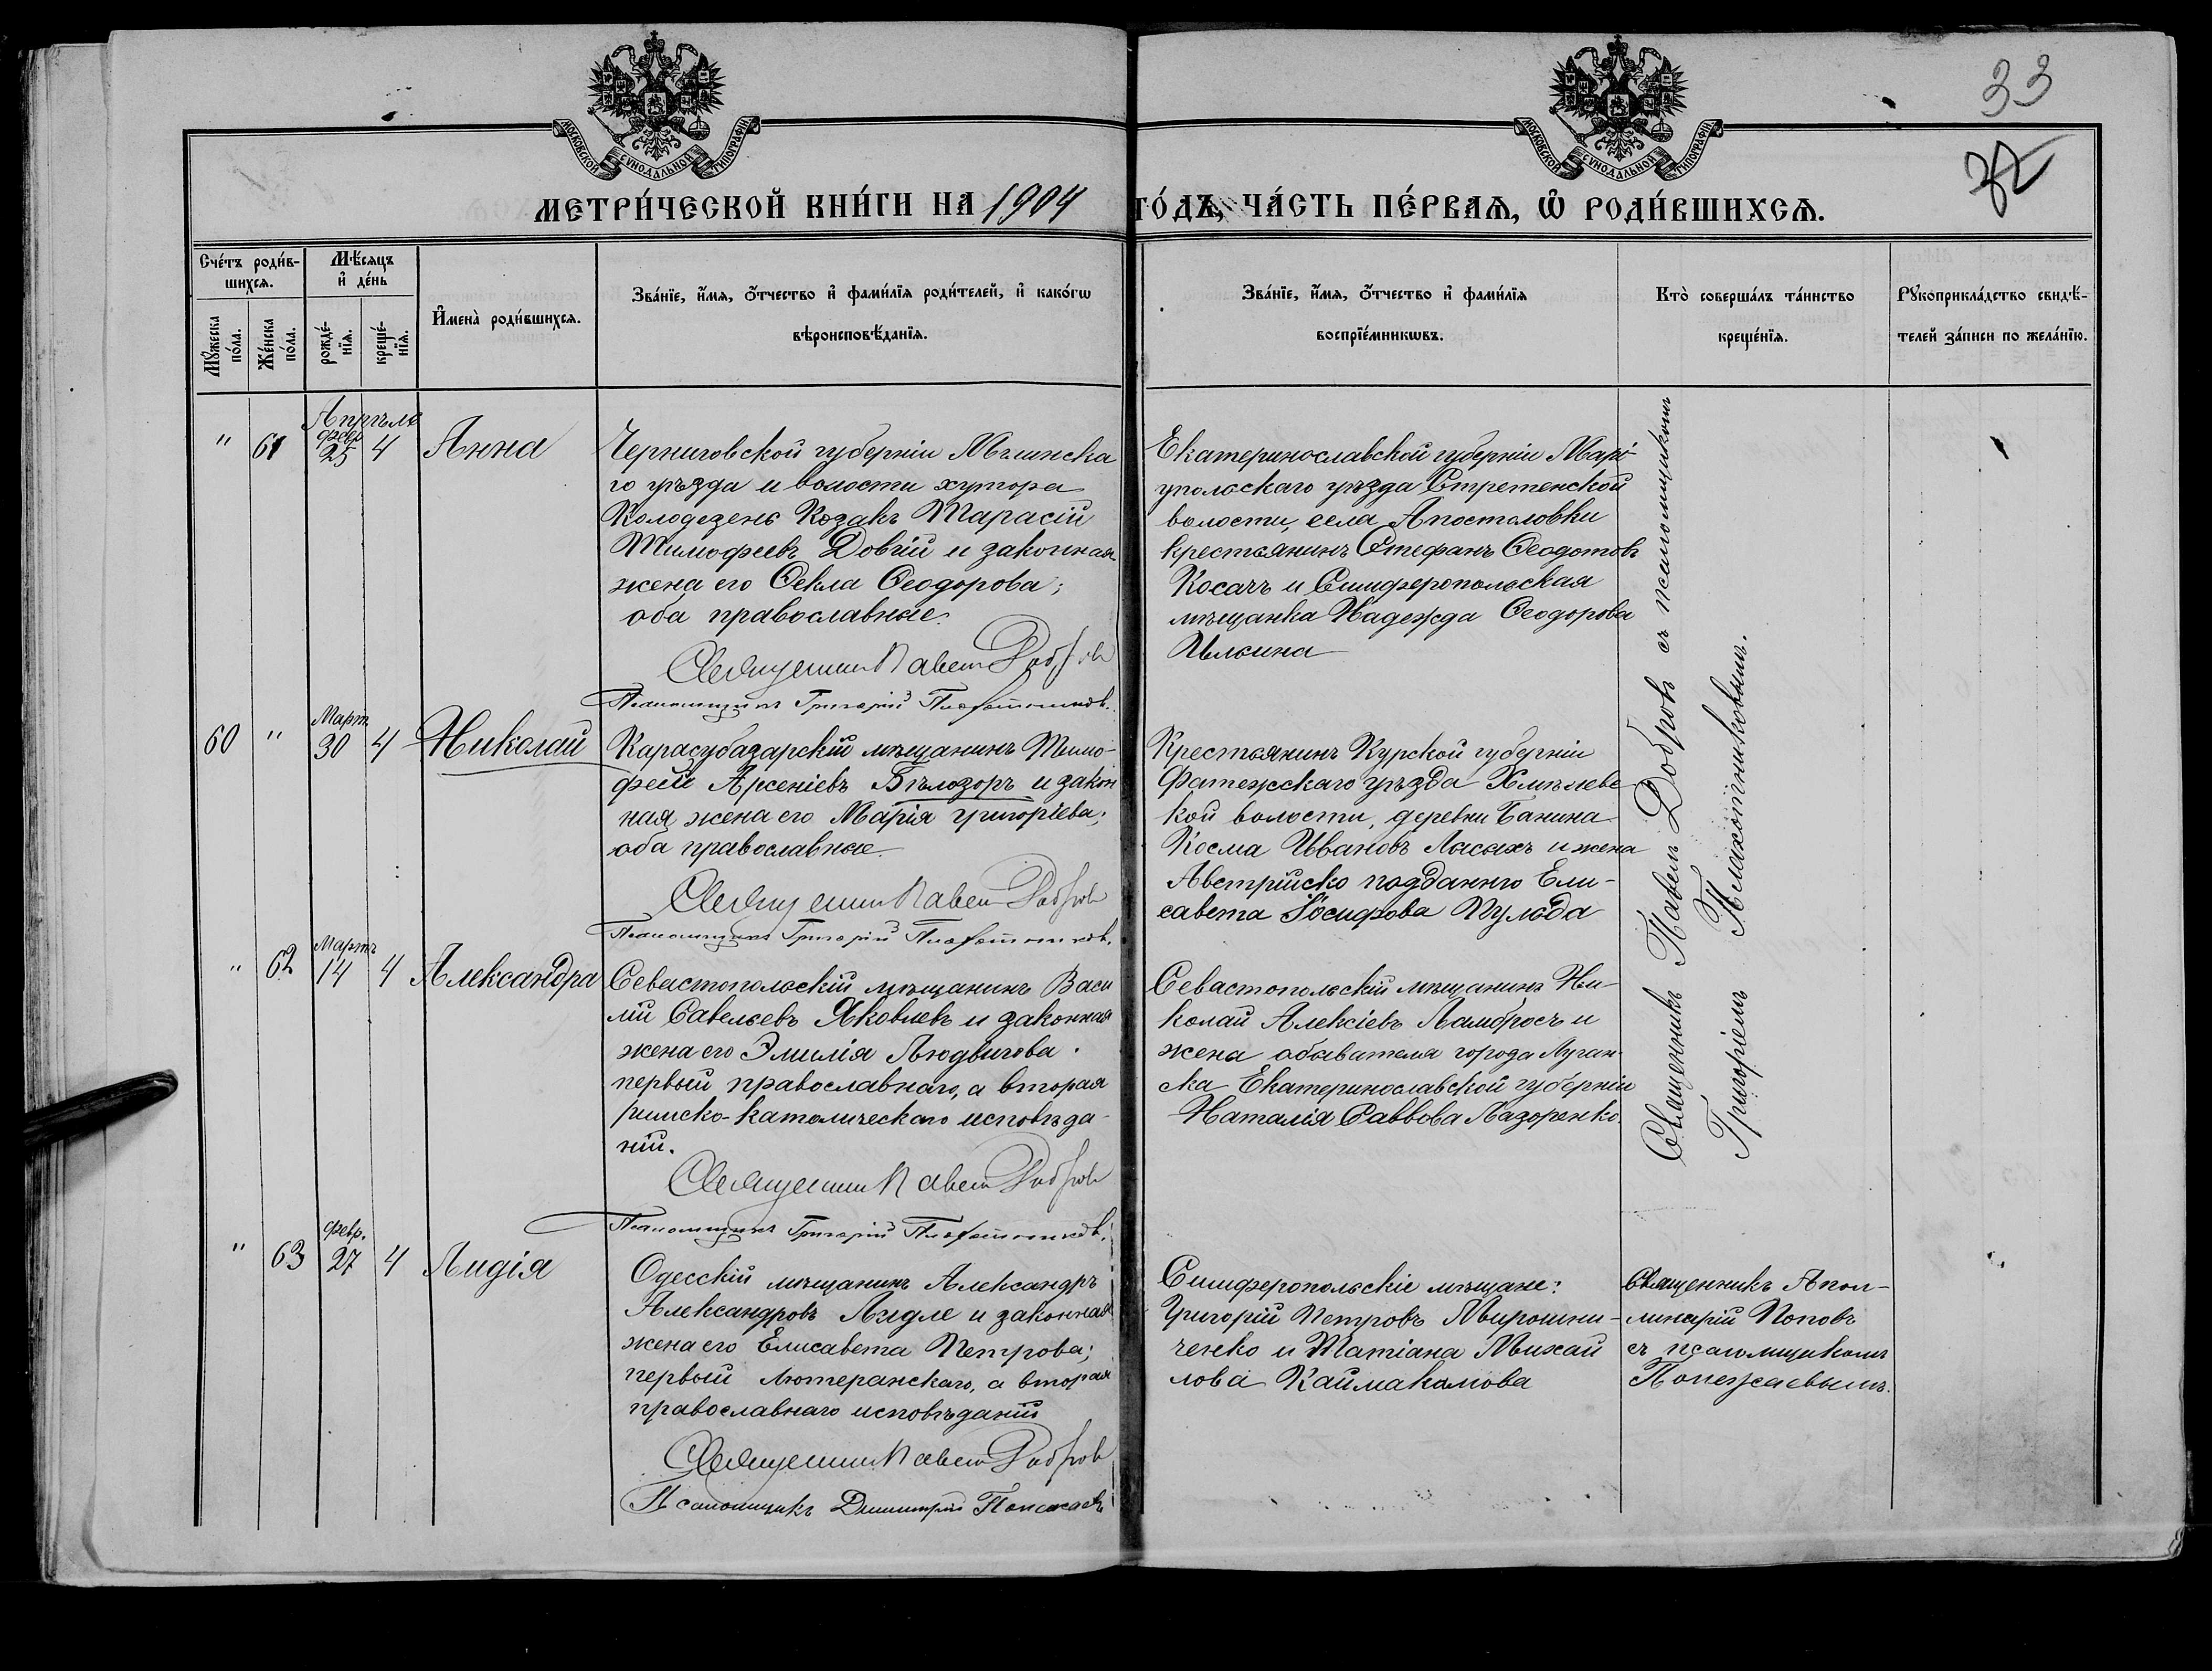 33
32
МОСКОВСКОЙ СѴНОДАЛЬНОЙ ТИПОГРАФІИ
МОСКОВСКОЙ СѴНОДАЛЬНОЙ ТИПОГРАФІИ
МЕТРИ́ЧЕСКОЙ КНИ́ГИ НА 1904 ГО́ДЪ, ЧА́СТЬ ПЕ́РВАѦ, Ѡ҆ РОДИ́ВШИХСѦ.
Сче́тъ роди́в-
шихсѧ.
Мꙋ́жеска по́ла.
Же́нска по́ла.
Мѣ́сѧцъ
и҆ де́нь
рожде́-
нїѧ.
креще́-
нїѧ.
И҆мена̀ роди́вшихсѧ.
Зва́нїе, и҆́мѧ, ѻ҆́тчество и҆ фами́лїѧ роди́телей, и҆ како́гѡ
вѣроисповѣ́данїѧ.
Зва́нїе, и҆́мѧ, ѻ҆́тчество и҆ фами́лїѧ
воспрїе́мникѡвъ.
Кто̀ соверша́лъ та́инство
креще́нїѧ.
Рꙋкоприкла́дство свидѣ́-
телей за́писи по жела́нїю.
Апрѣль
" 61 февр. 25 4 Анна
Черниговской губерніи Мглинска
го уѣзда и волости хутора
Колодезень Козакъ Тарасій
Тимофеевъ Довгій и законная
жена его Ѳекла Ѳеодорова;
оба православные.
Священникъ Павелъ Добровъ
Псаломщикъ Григорій Плахотниковъ.
Екатеринославской губерніи Марі-
упольскаго уѣзда Стретенской
волости, села Апостоловки
крестьянинъ Стефанъ Ѳеодотовъ
Косачъ и Симферопольская
мѣщанка Надежда Ѳеодорова
Ильина
60 " Март. 30 4 Николай
Карасубазарскій мѣщанинъ Тимо-
фей Арсеніевъ Бѣлозоръ и закон
ная жена его Марія Григоріева;
оба православные.
Священникъ Павелъ Добровъ
Псаломщикъ Григорій Плахотниковъ.
Крестьянинъ Курской губерніи
Фатежскаго уѣзда Хмѣлевс
кой волости, деревни Банина
Косма Ивановъ Лысыхъ и жена
Австрійско подданнго Ели-
савета Іосифова Пулода
" 62 Мартъ 14 4 Александра
Севастопольскій мѣщанинъ Васи
лій Савельевъ Яковлевъ и законная
жена его Эмилія Людвигова.
первый православнаго, а вторая
римско-католическаго исповѣда-
ній.
Священникъ Павелъ Добровъ
Псаломщикъ Григорій Плахотниковъ.
Севастопольскій мѣщанинъ Ни-
колай Алексіевъ Ламбросъ и
жена обывателя города Луган-
ска Екатеринославской губерніи
Наталія Саввова Лазоренко.
Священникъ Павелъ Добровъ съ псаломщикомъ
Григоріемъ Плахотниковымъ.
" 63 февр. 27 4 Лидія
Одесскій мѣщанинъ Александръ
Александровъ Лидле и законная
жена его Елисавета Петрова;
первый лютеранскаго, а вторая
православнаго исповѣданій
Священникъ Павелъ Добровъ
Псаломщикъ Димитрій Понежаевъ
Симферопольскіе мѣщане:
Григорій Петровъ Мирошни-
ченко и Татіана Михай
лова Каймаканова
Священникъ Апол-
линарій Поповъ
съ псаломщикомъ
Понежаевымъ.